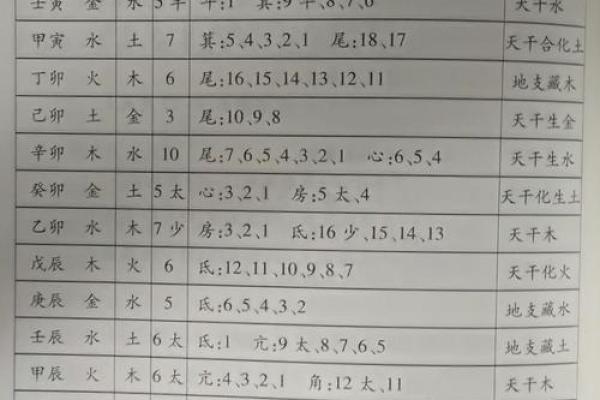 壬寅 金 水 5 半 斗:1 箕:9 半、8、7、6 天干水
甲寅 水 土 7 箕:5、4、3、2、1 尾:18、17 天干合化土
丁卯 火 木 6 尾:16、15、14、13、12、11 地支藏木
己卯 土 金 3 尾:10、9、8 天干生金
辛卯 木 水 10 尾:7、6、5、4、3、2、1 心:6、5、4 天干生水
癸卯 金 土 5 太 心:3、2、1 房:5 太、4 天干化生土
乙卯 水 木 7 少 房:3、2、1 氐:16 少、15、14、13 天干木
戊辰 木 火 6 氐:12、11、10、9、8、7 天干化火
庚辰 金 水 5 氐:6、5、4、3、2 地支藏水
壬辰 水 土 6 太 氐:1 亢:9 太、8、7、6、5 地支藏土
甲辰 火 木 6 太 亢:4、3、2、1 角:12 太、11 天干木